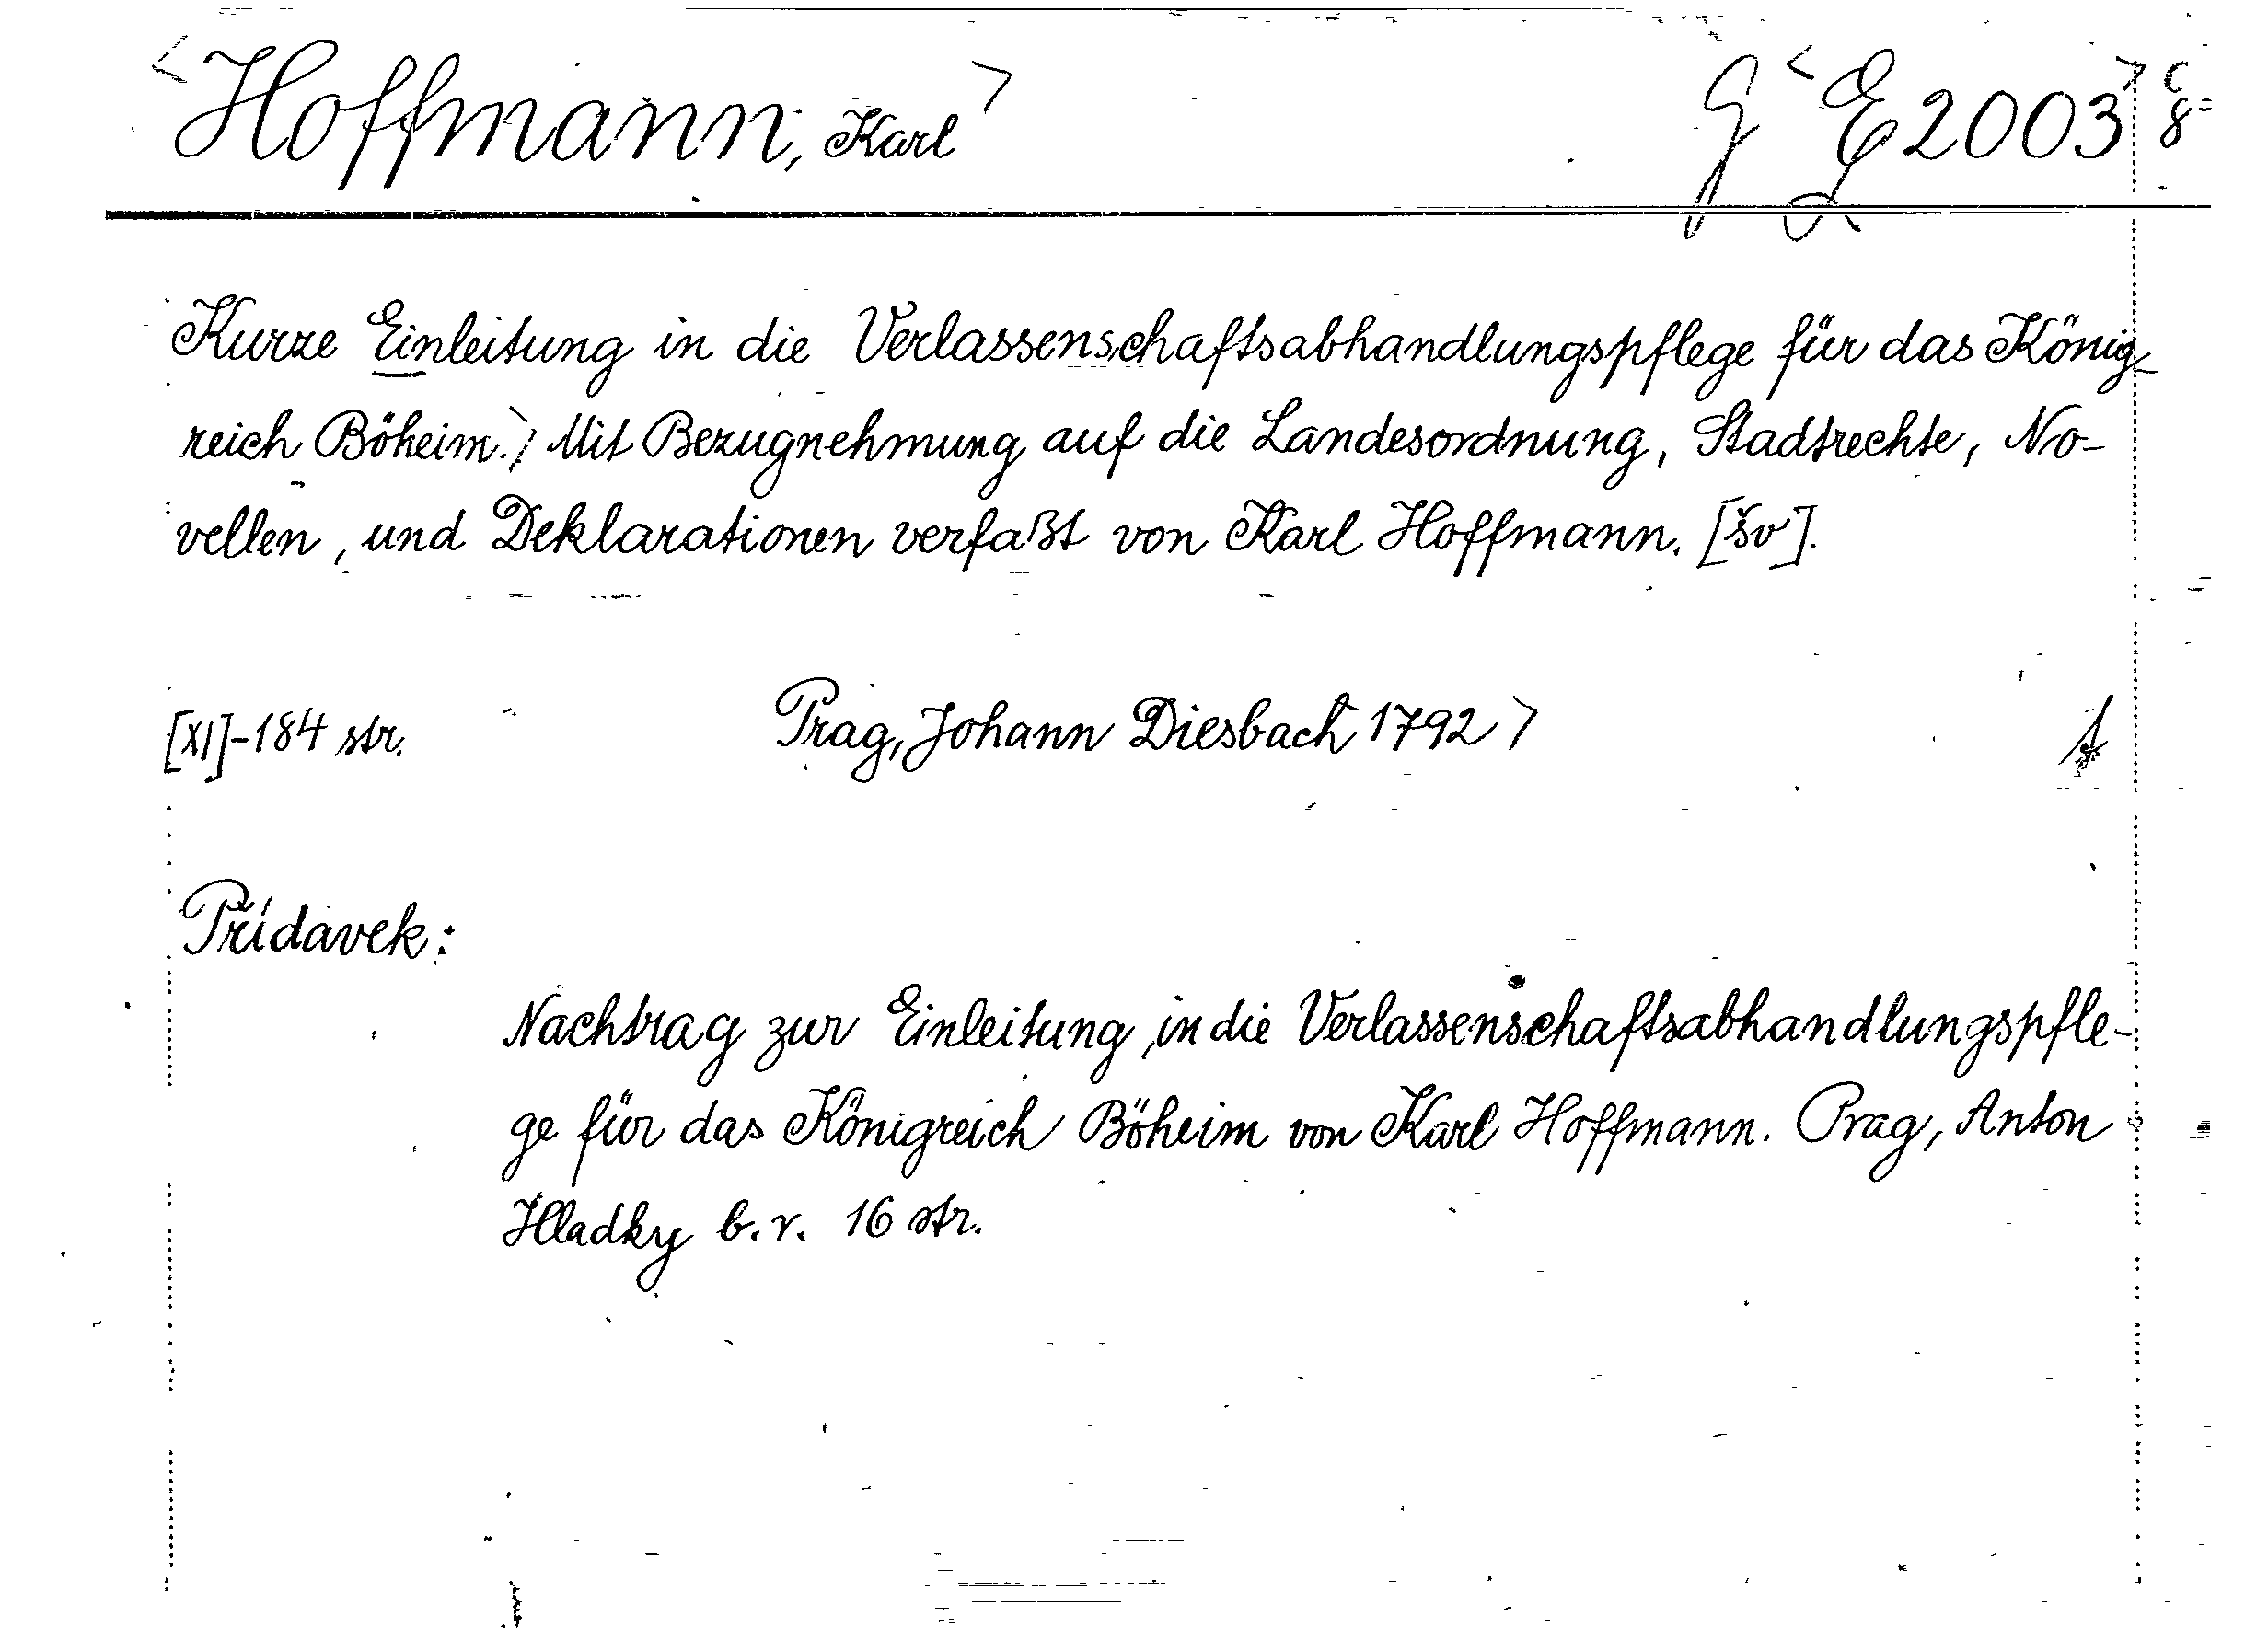 <Hoffmann, Karl> G <E 2003> C 8=
Kurze Einleitung in die Verlassenschaftsabhandlungspflege für das König-
reich Böheim.) Mit Bezugnehmung auf die Landesordnung, Stadtrechte, No-
vellen, und Deklarationen verfaßt von Karl Hoffmann. [šv].
[XI]-184 str. Prag, Johann Diesbach 1792>
Přídavek:
Nachtrag zur Einleitung in die Verlassenschaftsabhandlungspfle-
ge für das Königreich Böheim von Karl Hoffmann. Prag, Anton
Hladky b.r. 16 str.